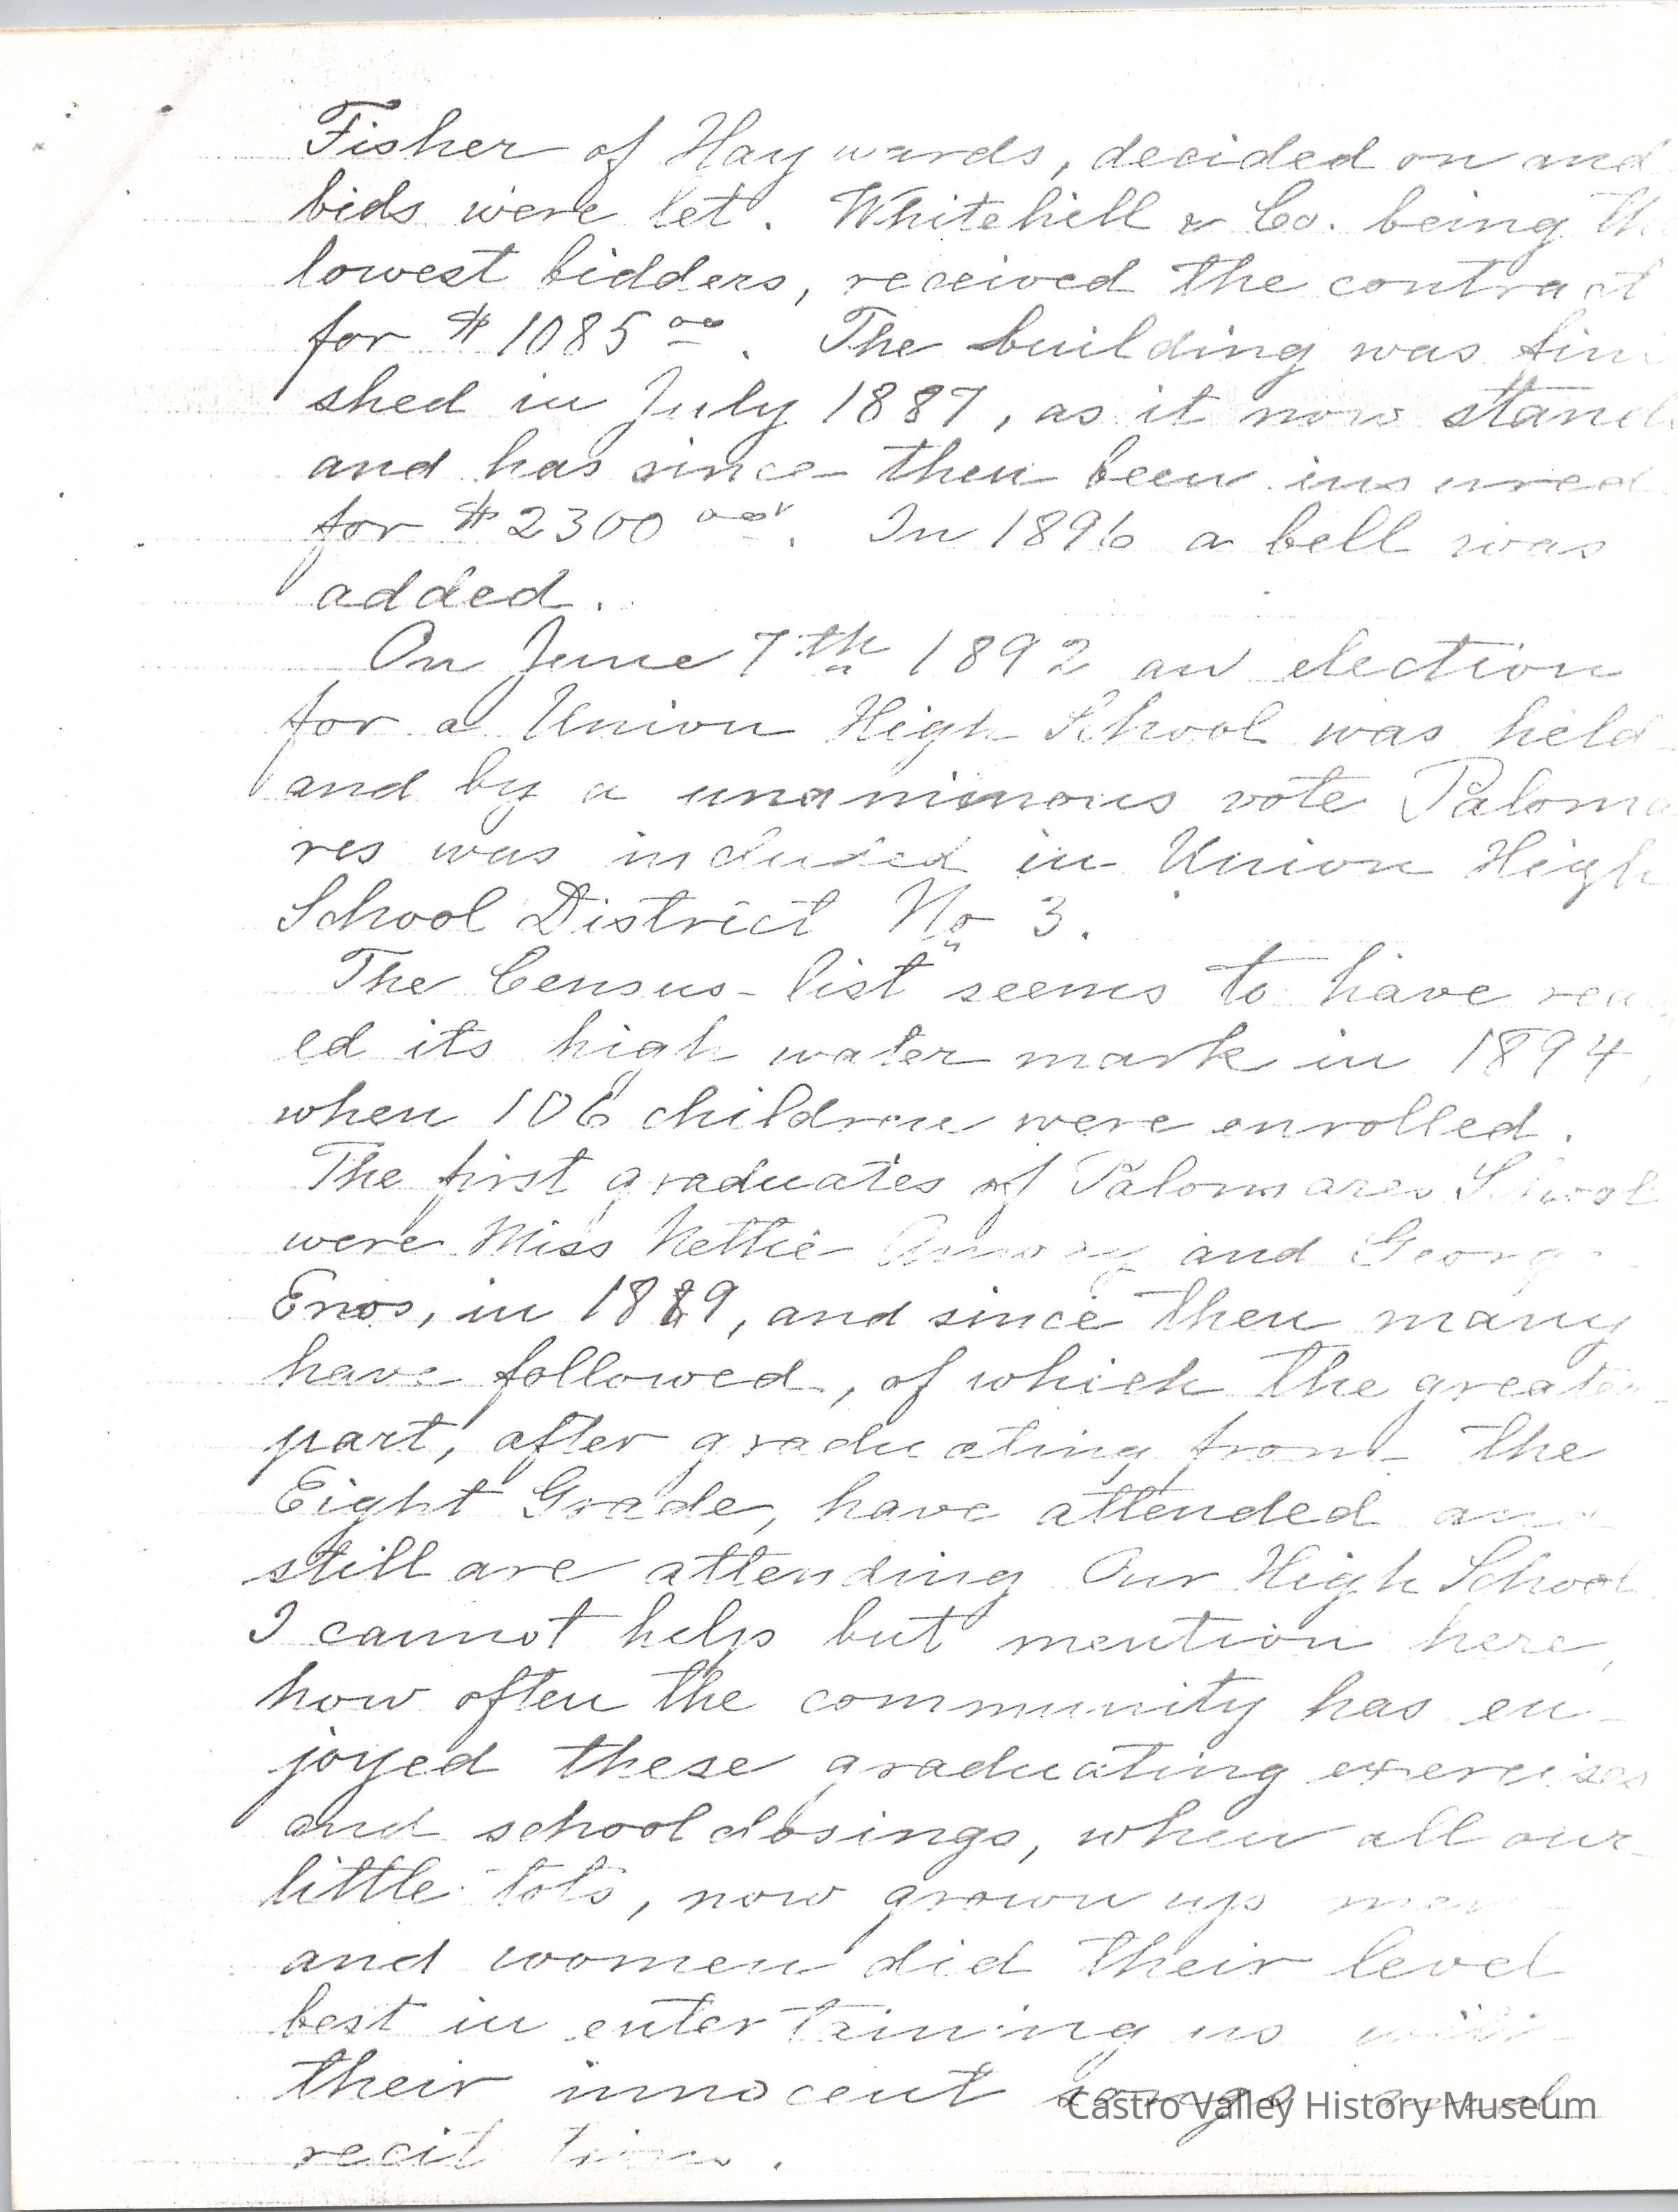 Fisher of Haywards, decided on and
bids were let. Whitehill & Co. being th
lowest bidders, received the contract
for $1085 00. The building was fini
shed in July 1887, as it now stands
and has since then been insured
for $2300 00. In 1896 a bell was
added.
On June 7th 1892 an election
for a Union High School was held
and by a unanimous vote Paloma
res was included in Union High
School District No 3.
The Census-list seems to have rea
ed its high water mark in 1894,
when 106 children were enrolled.
The first graduates of Palomares School
were Miss Nettie and George
Enos, in 1889, and since then many
have followed, of which the greater
part, after graduating from the
Eight Grade, have attended and
still are attending Our High School
I cannot help but mention here,
how often the community has en-
joyed these graduating exercises
and school closings, when all our
little tots, now grown up men
and women did their level
best in entertaining us with
their innocent songs and
Castro Valley History Museum